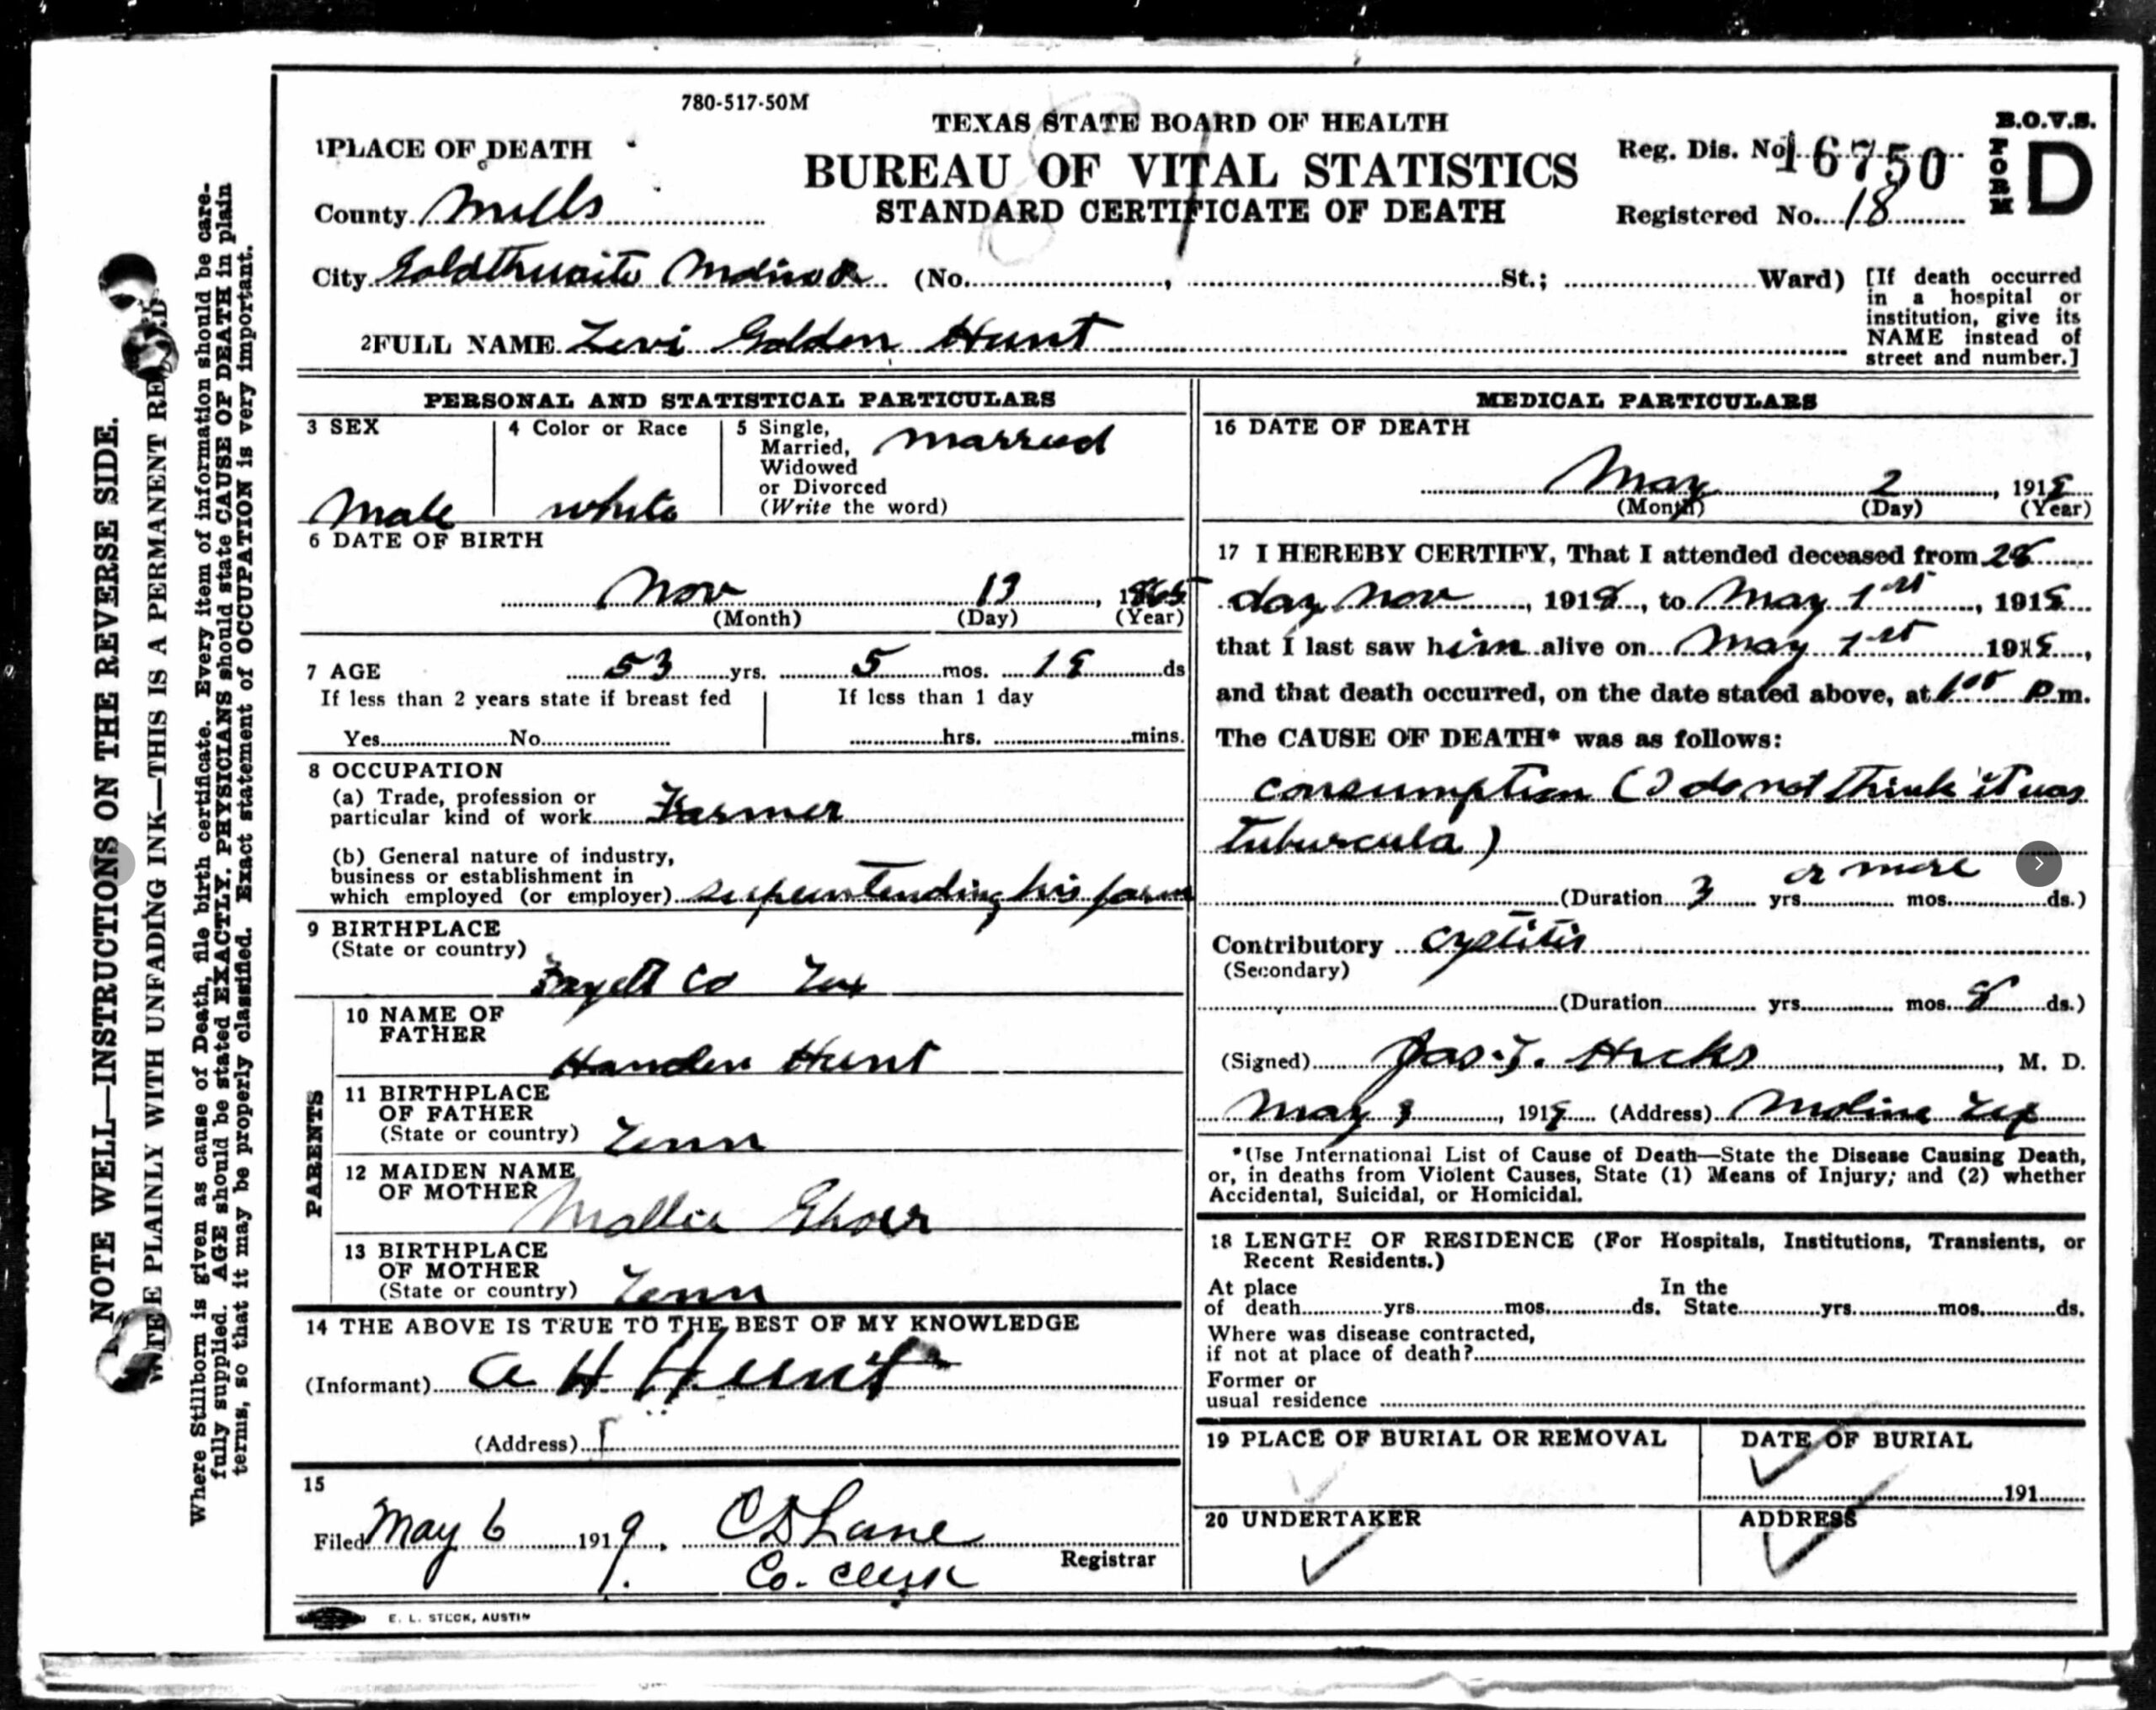 780-517-50M
TEXAS STATE BOARD OF HEALTH
BUREAU OF VITAL STATISTICS
STANDARD CERTIFICATE OF DEATH
B.O.V.S.
FORM D
Reg. Dis. No. 16750
Registered No. 18
1 PLACE OF DEATH
County Mills
City Goldthwaite (No. , St.; Ward)
[If death occurred
in a hospital or
institution, give its
NAME instead of
street and number.]
2 FULL NAME Levi Golden Hunt
PERSONAL AND STATISTICAL PARTICULARS
3 SEX
Male
4 Color or Race
white
5 Single,
Married,
Widowed
or Divorced
(Write the word)
married
6 DATE OF BIRTH
Nov 13, 1865
(Month) (Day) (Year)
7 AGE 53 yrs. 5 mos. ds
If less than 2 years state if breast fed
Yes No
If less than 1 day
hrs. mins.
8 OCCUPATION
(a) Trade, profession or
particular kind of work Farmer
(b) General nature of industry,
business or establishment in
which employed (or employer) his farm
9 BIRTHPLACE
(State or country)
Fayett Co Tex
PARENTS
10 NAME OF
FATHER
Hunt
11 BIRTHPLACE
OF FATHER
(State or country) Tenn
12 MAIDEN NAME
OF MOTHER
Mollie
13 BIRTHPLACE
OF MOTHER
(State or country) Tenn
14 THE ABOVE IS TRUE TO THE BEST OF MY KNOWLEDGE
(Informant) A H Hunt
(Address)
15
Filed May 6 1919. C D Lane
Co. Clerk
Registrar
E. L. STECK, AUSTIN
MEDICAL PARTICULARS
16 DATE OF DEATH
May 2, 1919
(Month) (Day) (Year)
17 I HEREBY CERTIFY, That I attended deceased from 28
day Nov, 1918, to May 1st, 1919
that I last saw him alive on May 1st 1919,
and that death occurred, on the date stated above, at 1 00 P.m.
The CAUSE OF DEATH* was as follows:
consumption (I do not think it was
tuburcula)
or more
(Duration 3 yrs. mos. ds.)
Contributory cystitis
(Secondary)
(Duration yrs. mos. 8 ds.)
(Signed) Jas. J. Hicks, M. D.
May 3, 1919 (Address) Moline Tex
*(Use International List of Cause of Death—State the Disease Causing Death,
or, in deaths from Violent Causes, State (1) Means of Injury; and (2) whether
Accidental, Suicidal, or Homicidal.
18 LENGTH OF RESIDENCE (For Hospitals, Institutions, Transients, or
Recent Residents.)
At place In the
of death yrs. mos. ds. State yrs. mos. ds.
Where was disease contracted,
if not at place of death?
Former or
usual residence
19 PLACE OF BURIAL OR REMOVAL
DATE OF BURIAL
191
20 UNDERTAKER
ADDRESS
NOTE WELL—INSTRUCTIONS ON THE REVERSE SIDE.
PLAINLY WITH UNFADING INK—THIS IS A PERMANENT
Where Stillborn is given as cause of Death, file birth certificate. Every item of information should be care-
fully supplied. AGE should be stated EXACTLY. PHYSICIANS should state CAUSE OF DEATH in plain
terms, so that it may be properly classified. Exact statement of OCCUPATION is very important.